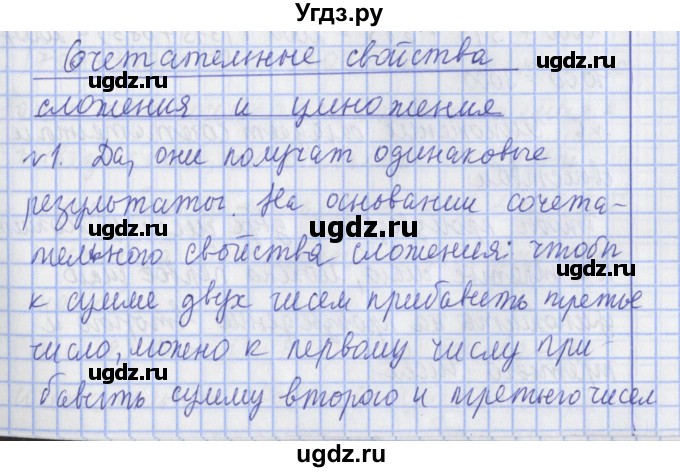 Угдз.ру
Сочетательные свойства
сложения и умножения
№1. Да, они получат одинаковые
результаты. На основании сочета-
тельного свойства сложения: чтобы
к сумме двух чисел прибавить третье
число, можно к первому числу при
бавить сумму второго и третьего чисел
ugdz.ru
ugdz.ru
ugdz.ru
ugdz.ru
ugdz.ru
ugdz.ru
ugdz.ru
ugdz.ru
ugdz.ru
ugdz.ru
Угдз.ру